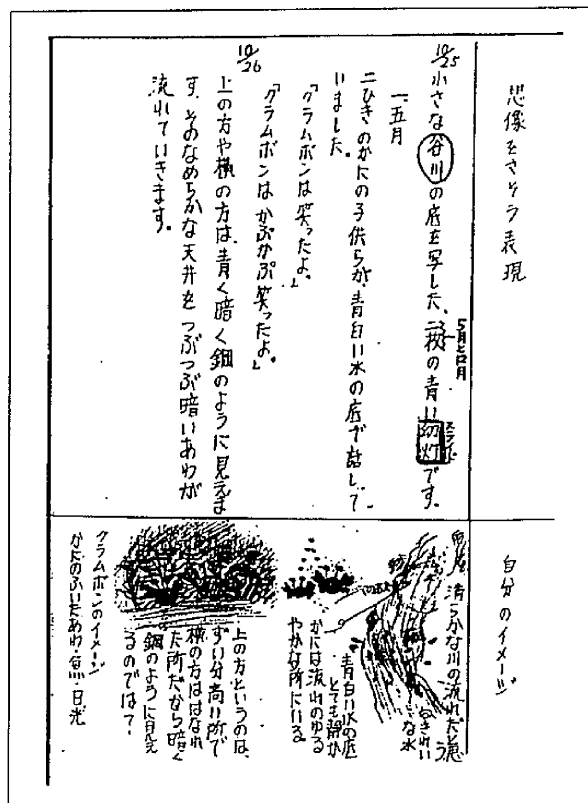 想像をさそう表現
10/25
小さな谷川の底を写した、二枚の青い幻灯です。
5月と12月
スライド
一、五月
二ひきのかにの子供らが、青白い水の底で話して
いました。
「クラムボンは笑ったよ。」
「クラムボンはかぷかぷ笑ったよ。」
10/26
上の方や横の方は、青く暗く鋼のように見えま
す。そのなめらかな天井を、つぶつぶ暗いあわが
流れていきます。
自分のイメージ
清らかな川の流れだと思う。
きれいな水
青白い水の底
とても静か
かには流れのゆる
やかな所にいる
上の方というのは、
ずい分高い所で
横の方ははなれ
た所だから暗く
鋼のように見え
るのでは?
クラムボンのイメージ
かにのふいたあわ・魚・日光